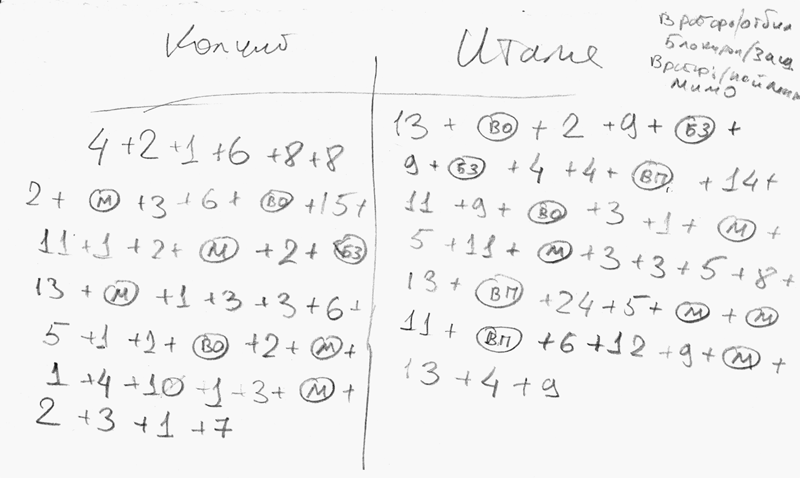 Италие
Вратарь/отбил
Блокиров/Защ
МИМО
4 + 2 + 1 + 6 + 8 + 8
2 + М + 3 + 6 + ВО + 15 +
11 + 1 + 2 + М + 2 + БЗ
13 + М + 1 + 3 + 3 + 6 +
5 + 1 + 1 + ВО + 2 + М +
1 + 4 + 10 + 1 + 3 + М +
2 + 3 + 1 + 7
13 + ВО + 2 + 9 + БЗ +
9 + БЗ + 4 + 4 + ВП + 14 +
11 + 9 + ВО + 3 + 1 + М +
5 + 11 + М + 3 + 3 + 5 + 8 +
13 + ВП + 24 + 5 + М + М
11 + ВП + 6 + 12 + 9 + М +
13 + 4 + 9